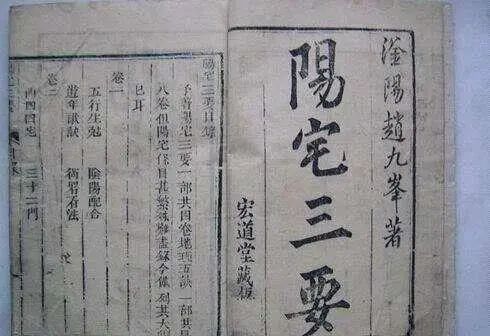 滏陽趙九峯著
陽宅三要
宏道堂藏板
陽宅三要目錄
予著陽宅三要一部共四卷地理五訣一部
八卷但陽宅條目甚繁難盡錄今僅列其大
已耳
卷一
五行生尅 陰陽配合
遊年歌訣 衙署有法
卷二
四宅 三十二門